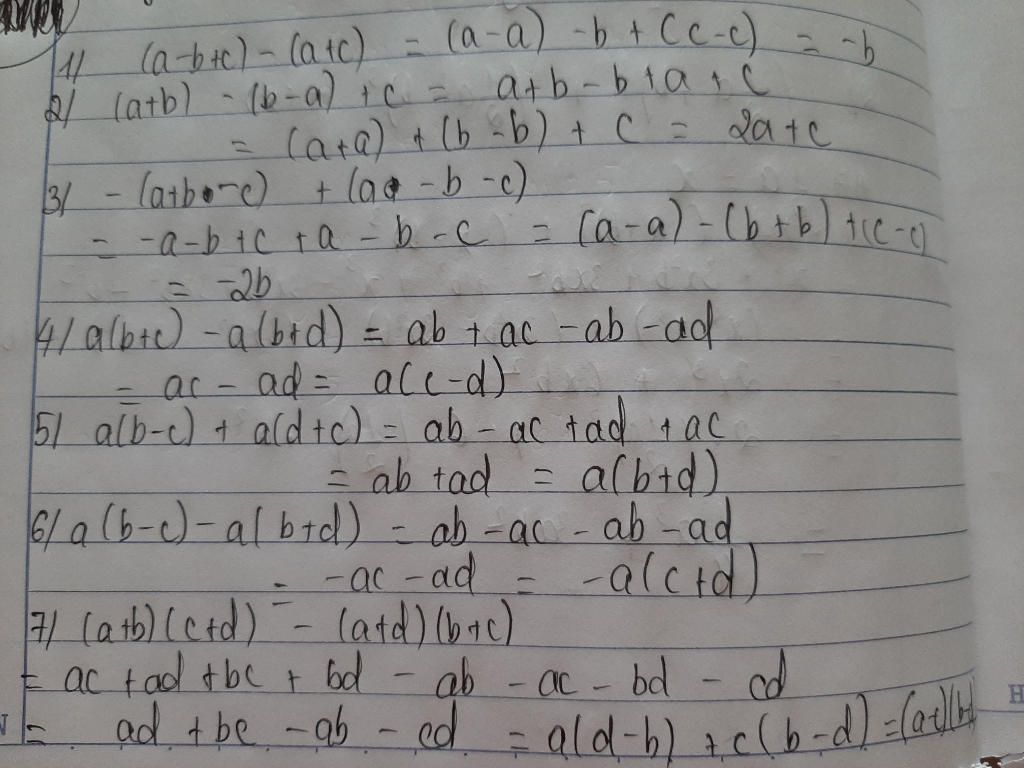 1) (a-b+c) - (a+c) = (a-a) - b + (c-c) = -b
2) (a+b) - (b-a) + c = a+b-b+a+c
= (a+a) + (b-b) + c = 2a+c
3) - (a+b-c) + (a-b-c)
= -a-b+c+a-b-c = (a-a) - (b+b) + (c-c)
= -2b
4) a(b+c) - a(b+d) = ab + ac - ab - ad
= ac - ad = a(c-d)
5) a(b-c) + a(d+c) = ab - ac + ad + ac
= ab + ad = a(b+d)
6) a(b-c) - a(b+d) = ab - ac - ab - ad
= -ac - ad = -a(c+d)
7) (a+b)(c+d) - (a+d)(b+c)
= ac + ad + bc + bd - ab - ac - bd - cd
= ad + bc - ab - cd = a(d-b) + c(b-d) =
H